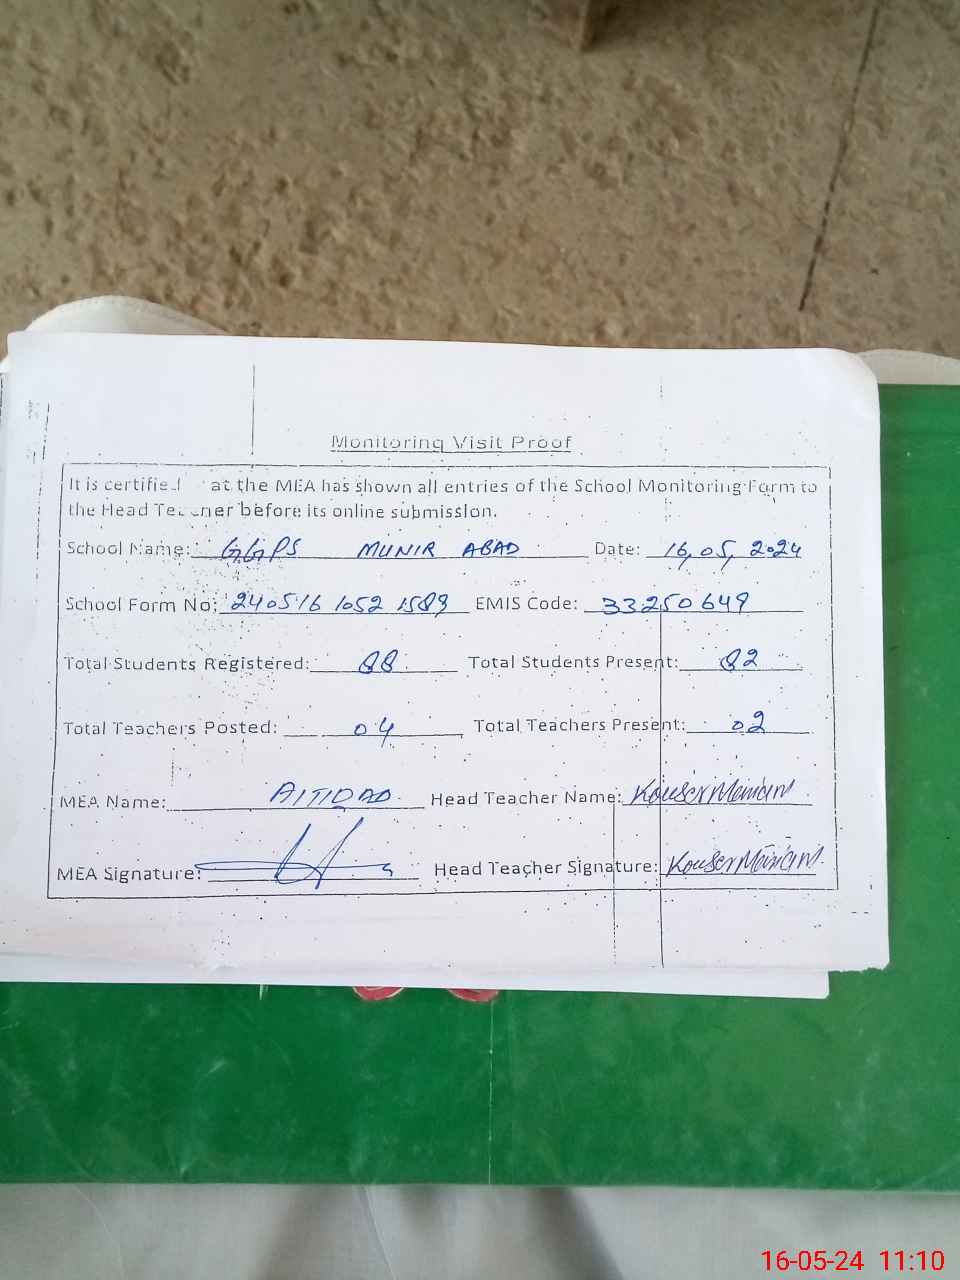 Monitoring Visit Proof
It is certified at the MEA has shown all entries of the School Monitoring Form to
the Head Teacher before its online submission.
School Name: GGPS MUNIR ABAD Date: 16,05,2024
School Form No: 240516 1052 1589 EMIS Code: 33250649
Total Students Registered: 88 Total Students Present: 82
Total Teachers Posted: 04 Total Teachers Present: 02
MEA Name: Head Teacher Name: Kouser
MEA Signature: Head Teacher Signature: Kouser
16-05-24 11:10